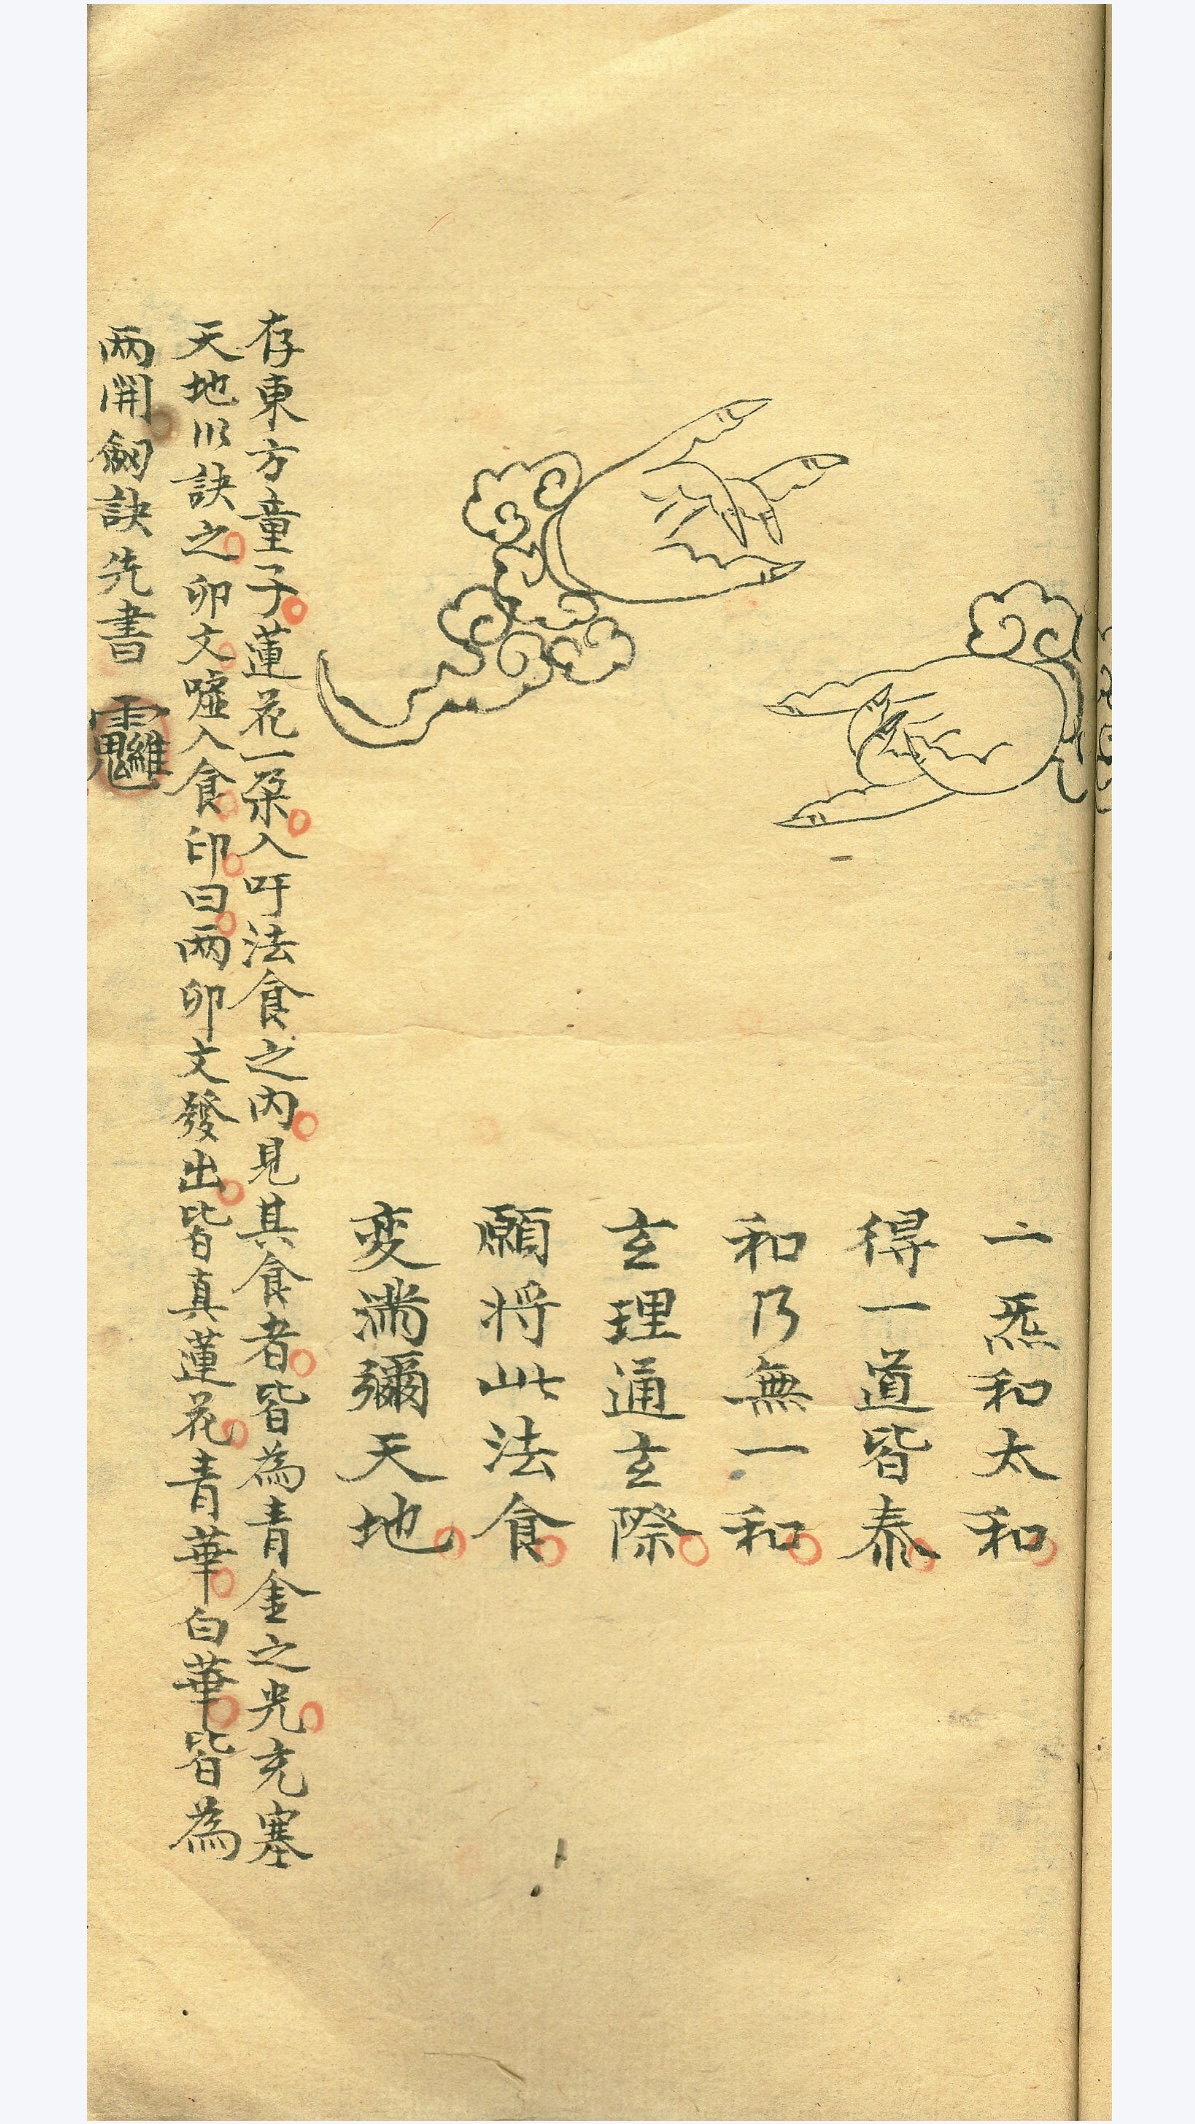 一炁和太和
得一道皆泰
和乃無一和
玄理通玄際
願将此法食
変満彌天地
存東方童子蓮花一朶入吁法食之內見其食者皆為青金之光充塞
天地以訣之卯文噓入食印曰两卯文發出皆真蓮花青華白華皆為
两開劒訣先書